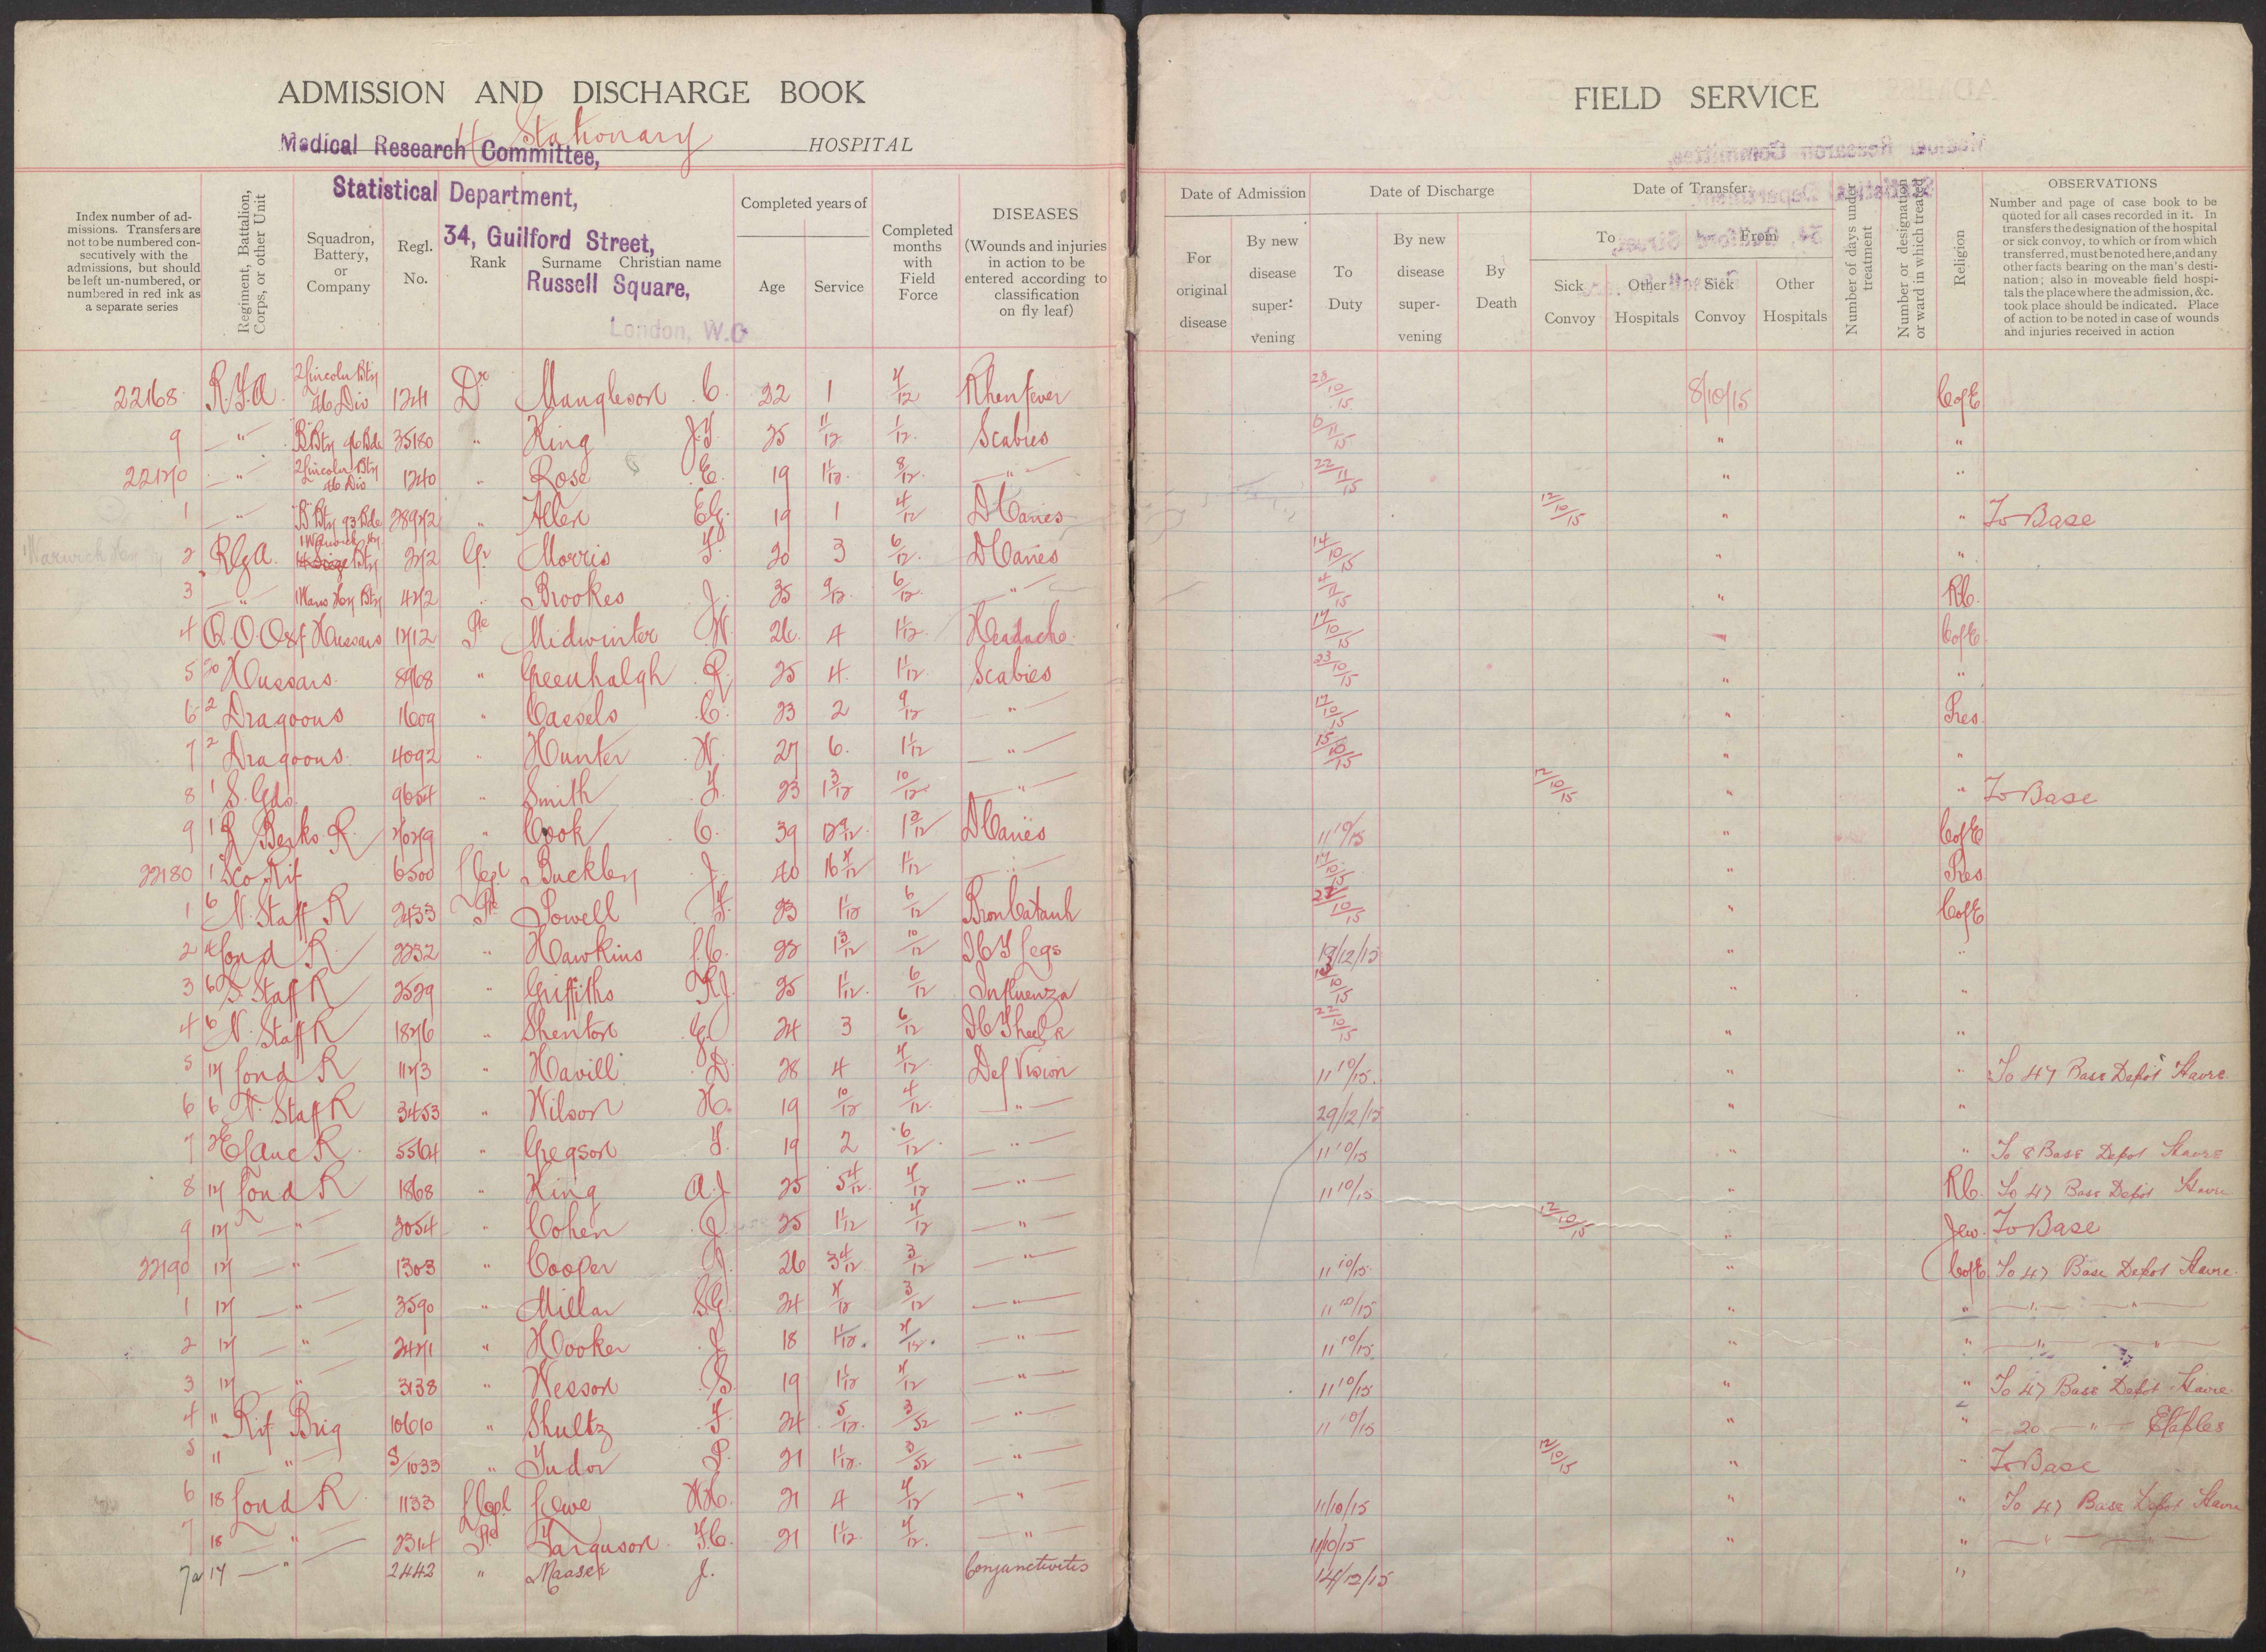 ADMISSION AND DISCHARGE BOOK
4 Stationary HOSPITAL
Medical Research Committee,
Statistical Department,
34, Guilford Street,
Russell Square,
London, W.C
Index number of admissions. Transfers are not to be numbered consecutively with the admissions, but should be left un-numbered, or numbered in red ink as a separate series
Regiment, Battalion, Corps, or other Unit
Squadron, Battery, or Company
Regl. No.
Rank
Surname Christian name
Completed years of
Age Service
Completed months with Field Force
DISEASES
(Wounds and injuries in action to be entered according to classification on fly leaf)
FIELD SERVICE
Date of Admission
For original disease
By new disease super-vening
Date of Discharge
To Duty
By new disease super-vening
By Death
Date of Transfer
To From
Sick Convoy
Other Hospitals
Sick Convoy
Other Hospitals
Number of days under treatment
Number or designation or ward in which treated
Religion
OBSERVATIONS
Number and page of case book to be quoted for all cases recorded in it. In transfers the designation of the hospital or sick convoy, to which or from which transferred, must be noted here, and any other facts bearing on the man's destination; also in moveable field hospitals the place where the admission, &c. took place should be indicated. Place of action to be noted in case of wounds and injuries received in action
22168 R.F.A. 2 Lincoln Bty 46 Div 1241 Dr Mangleson C. 22 1 4/12 Rhen fever 28/10/15 8/10/15 CofE
9 " B Bty 96 Bde 35180 " King J.F. 25 11/12 1/12 Scabies 6/11/15 " "
22170 " 2 Lincoln Bty 46 Div 1240 " Rose E. 19 1 1/12 8/12 " 22/11/15 " "
1 " B Bty 93 Bde 28972 " Allen E.G. 19 1 4/12 D Caries 12/10/15 " " To Base
2 R.G.A. 1 Warwick Hy Bty 272 Gr Morris F. 20 3 6/12 D Caries 14/10/15 " "
3 " 1 Warw Hy Bty 472 " Brookes J. 35 9/12 6/12 " 4/11/15 " RC.
4 Q.O. Oxf Hussars 1712 Pte Midwinter W. 26 4 1 1/12 Headache 14/10/15 " CofE
5 20 Hussars 8968 " Greenhalgh R. 25 4 1 1/12 Scabies 23/10/15 " "
6 2 Dragoons 1609 " Cassels C. 23 2 9/12 " 14/10/15 " Pres.
7 2 Dragoons 4092 " Hunter W. 27 6 1 1/12 " 15/10/15 " "
8 1 S. Gds 9654 " Smith F. 23 1 3/12 10/12 " 12/10/15 " " To Base
9 1 R Berks R 7079 " Cook C. 39 12 9/12 1 2/12 D Caries 11/10/15 " CofE
22180 1 Sco Rif 6500 L Cpl Buckley J. 40 16 4/12 1 1/12 " 14/10/15 " Pres
1 6 N. Staff R 2433 Pte Powell F. 23 1 1/12 6/12 Bron Catarrh 23/10/15 " CofE
2 4 Lond R 2232 " Hawkins L.C. 28 1 3/12 10/12 ICT Legs 18/12/15 " "
3 6 S. Staff R 2529 " Griffiths R.J. 25 1 1/12 6/12 Influenza 13/10/15 " "
4 6 N. Staff R 1876 " Shenton G. 24 3 6/12 ICT heel R 22/10/15 " "
5 17 Lond R 1173 " Havill D. 28 4 7/12 Def Vision 11/10/15 " " To 47 Base Depôt Havre
6 6 N. Staff R 3453 " Wilson H. 19 10/12 4/12 " 29/12/15 " "
7 E Lanc R 5564 " Gregson F. 19 2 6/12 " 11/10/15 " " To 8 Base Depot Havre
8 17 Lond R 1868 " King A.J. 25 5 4/12 7/12 " 11/10/15 " RC. To 47 Base Depôt Havre
9 17 " 3054 " Cohen J. 25 1 1/12 7/12 " 12/10/15 " Jew. To Base
22190 17 " 1303 " Cooper A. 26 3 4/12 3/12 " 11/10/15 " CofE To 47 Base Depot Havre
1 17 " 3590 " Millar S.G. 24 7/12 3/12 " 11/10/15 " " " "
2 17 " 2471 " Hooker J. 18 1 1/12 7/12 " 11/10/15 " " " "
3 17 " 3138 " Wesson S. 19 1 1/12 7/12 " 11/10/15 " " To 47 Base Depôt Havre
4 " Rif Brig 10610 " Shultz F. 24 5/12 3/52 " 11/10/15 " " 20 " Etaples
5 " " S/1033 " Tudor P. 21 1 1/12 3/52 " 12/10/15 " " To Base
6 18 Lond R 1133 L Cpl Lowe W.H. 21 4 7/12 " 11/10/15 " " To 47 Base Depot Havre
7 18 " 2314 Pte Farguson F.C. 21 1 1/12 7/12 " 11/10/15 " " " "
7a 17 " 2442 " Maaser J. Conjunctivitis 14/12/15 "